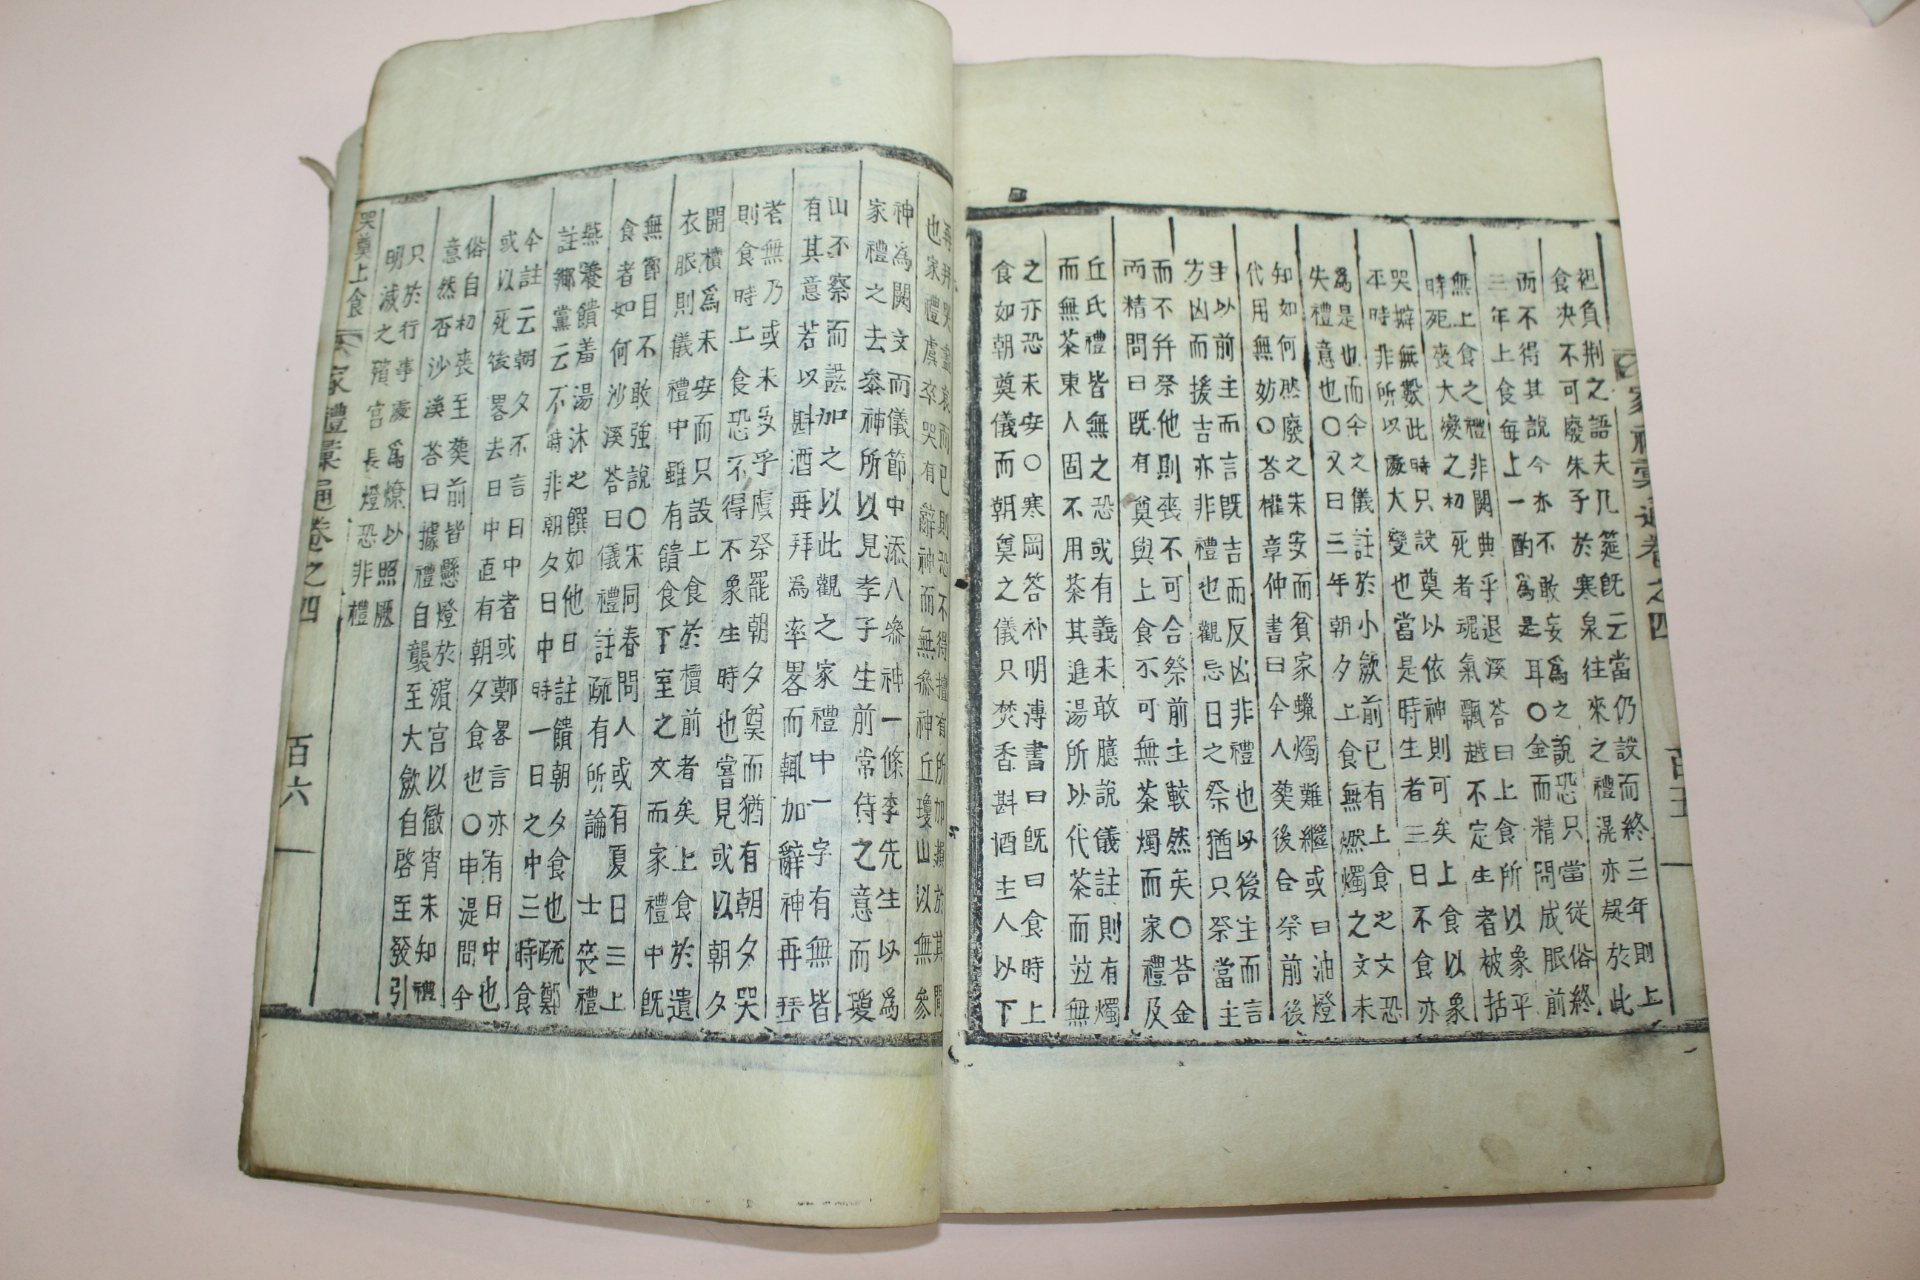 家禮彙通卷之四 百五
祖負荆之語夫几筵旣云當仍設而終三年則上
食决不可廢朱子於寒泉往來之禮滉亦疑於此
而不得其說今亦不敢妄爲之說恐只當從俗終
三年上食每上一酌爲是耳〇金而精問成服前
無上食之禮非闕典乎退溪荅曰上食所以象平
時死喪大變之初死者魂氣飄越不定生者被括
哭擗無數此時只設奠以依神則可矣上食以象
平時非所以處大變也當是時生者三日不食亦
爲是也而今之儀註於小斂前已有上食之文恐
失禮意也〇又曰三年朝夕上食無燃燭之文未
知如何然廢之未安而貧家蠟燭難繼或曰油燈
代用無妨〇荅權章仲書曰今人葬後合祭前後
主以前主而言旣吉而反凶非禮也以後主而言
方凶而援吉亦非禮也觀忌日之祭猶只祭當主
而不幷祭他則喪不可合祭前主較然矣〇荅金
而精問曰旣有奠與上食不可無茶燭而家禮及
丘氏禮皆無之恐或有義未敢臆說儀註則有燭
而無茶東人固不用茶其進湯所以代茶而並無
之亦恐未安〇寒岡答朴明漙書曰旣曰食時上
食如朝奠儀而朝奠之儀只焚香斟酒主人以下
再拜哭盡哀而已則恐不得擅有所加於其間
也家禮虞卒哭有辭神而無參神丘瓊山以無參
神爲闕文而儀節中添入參神一條李先生以爲
家禮之去參神所以見孝子生前常侍之意而瓊
山不察而誤加之以此觀之家禮中一字有無皆
有其意若以斟酒再拜爲率畧而輒加辭神再拜
若無乃或未安乎虞祭罷朝夕奠而猶有朝夕哭
則食時上食恐不得不象生時也嘗見或以朝夕
開櫝爲未安而只設上食於櫝前者矣上食於遺
衣服則儀禮中雖有饋食下室之文而家禮中旣
無節目不敢強說〇宋同春問人或有夏日三上
食者如何沙溪荅曰儀禮註疏有所論 士喪禮
燕養饋羞湯沐之饌如他日註饋朝夕食也疏鄭
註鄉黨云不時非朝夕日中時一日之中三時食
今註云朝夕不言日中者或鄭畧言亦有日中也
或以死後畧去日中直有朝夕食也〇申湜問今
俗自初喪至葬前皆懸燈於殯宮以徹宵未知禮
意然否沙溪荅曰據禮自襲至大斂自啓至發引
只於行事處爲燎以照厥
明滅之殯宮長燈恐非禮
哭奠上食
家禮彙通卷之四 百六